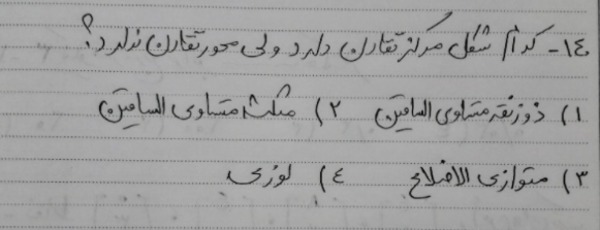 ١٤- کدام شکل مرکز تقارن دارد ولی محور تقارن ندارد؟
١) ذوزنقه متساوی الساقین ٢) مثلث متساوی الساقین
٣) متوازی الاضلاع ٤) لوزی